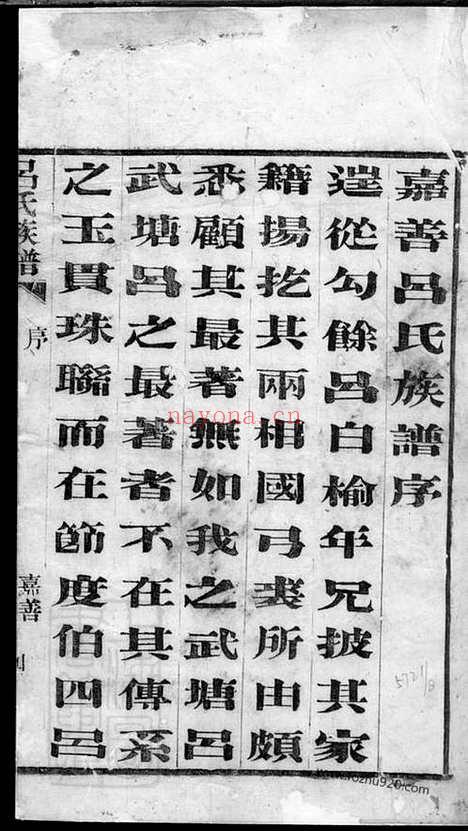 嘉善呂氏族譜序
從勾餘呂白榆年兄披其家
籍揚扢其兩相國弓裘所由頗
悉顧其最著無如我之武塘呂
武塘呂之最著者不在其傳系
之玉貫珠聯而在節度伯四呂
呂氏族譜
序
嘉善
nayona.cn